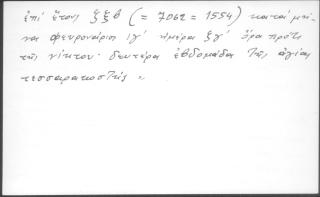 ἐπί ἔτους ζξβ (= 7062 = 1554) κατά μῆ-
να φευρουάριον ιγ' ἡμέρα ξγ' ὅρα πρότι
τῆς νίκτου. δευτέρα ἑβδομάδα τῆς ἁγίας
τεσσαρακοστῆς.